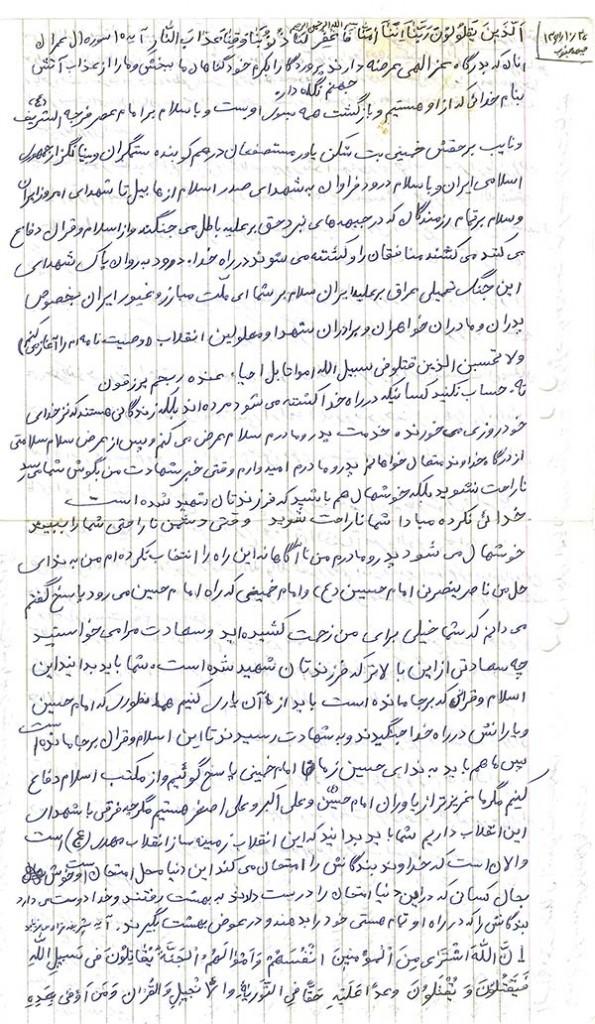 بسم الله الرحمن الرحیم
اَلَّذینَ یَقُولُونَ رَبَّنا اِنَّنا امَنّا فَاغْفِرْ لَنا ذُنُوبَنا وَقِنا عَذابَ النّارِ آیه ۱۰ سوره ال عمران
آنان که بدرگاه عز الهی عرضه دارند پروردگارا بکرم خود گناهان ما ببخش و ما را از عذاب آتش
جهنم نگاه دار.
بنام خدائی که از او هستیم و بازگشت همه بسوی اوست و با سلام بر امام عصر فرجه الشریف
و نایب برحقش خمینی بت شکن یاور مستضعفان درهم کوبنده ستمگران و بنیانگزار جمهوری
اسلامی ایران و با سلام درود فراوان به شهدای صدر اسلام از هابیل تا شهدای امروز ایران
و سلام بر تمام رزمندگان که در جبهه های نبرد حق بر علیه باطل می جنگند و از اسلام و قران دفاع
می کنند می کشند منافقان را و کشته می شوند در راه خدا. درود به روان پاک شهدای
این جنگ تحمیلی عراق بر علیه ایران سلام بر شما ای ملت مبارز و غیور ایران بخصوص
پدران و مادران خواهران و برادران شهدا و معلولین انقلاب (وصیت نامه ام را آغاز می کنم)
ولا تحسبن الذین قتلو فی سبیل الله امواتا بل احیاء عنده ربهم یرزقون
حساب نکنید کسانیکه در راه خدا کشته می شود مرده اند بلکه زندگانی هستند که نزد خدای
خود روزی می خورند. خدمت پدر و مادرم سلام عرض می کنم و پس از عرض سلام سلامتی
از درگاه خداوند متعال خواهانم پدر و مادرم امیدوارم وقتی خبر شهادت من بگوش شما می رسد
ناراحت نشوید بلکه خوشهال هم باشید که فرزندتان شهید شده است
خدائی نکرده مبادا شما ناراحت شوید وقتی دشمن ناراحتی شما را ببیند
خوشهال می شود پدر و مادرم من ناآگاهانه این راه را انتخاب نکرده ام من به ندای
حل من ناصر ینصرنی امام حسین (ع) و امام خمینی که راه امام حسین می رود پاسخ گفتم
می دانم که شما خیلی برای من زحمت کشیده اید و سعادت مرا می خواستید
چه سعادتی از این بالاتر که فرزندتان شهید شده است. شما باید بدانید این
اسلام و قران که برجا مانده است باید از آن یاری کنیم همانطوری که امام حسین
و یارانش در راه خدا جنگیدند و به شهادت رسیدند تا این اسلام و قران برجا مانده است
پس ما هم باید به ندای حسین زمان امام خمینی پاسخ گوئیم و از مکتب اسلام دفاع
کنیم مگر ما عزیزتر از یاوران امام حسین و علی اکبر و علی اصغر هستیم مگر چه فرقی با شهدای
این انقلاب داریم شما باید بدانید که این انقلاب زمینه ساز انقلاب مهدی (عج) است
و الان است که خداوند بندگانش را امتحان می کند این دنیا محل امتحان است و خوش
بحال کسانی که در این دنیا امتحان را درست دادند به بهشت رفتند و خدا دوست می دارد
بندگانش را که در راه او تمام هستی خود را بدهند و در عوض بهشت بگیرند.
اِنَّ اللهَ اشْتَرى مِنَ الْمُؤمِنینَ اَنْفُسَهُمْ وَ اَمْوالَهُمْ الْجَنَّةَ یُقاتِلُونَ فی سَبیلِ اللهِ
فَیَقْتُلُونَ وَ یُقْتَلُونَ وَعْداً عَلَیْهِ حَقّاً فِی التَّوریةِ والْاِنْجیلِ وَالْقُرانِ وَمَنْ اَوْفى بِعَهْدِهِ